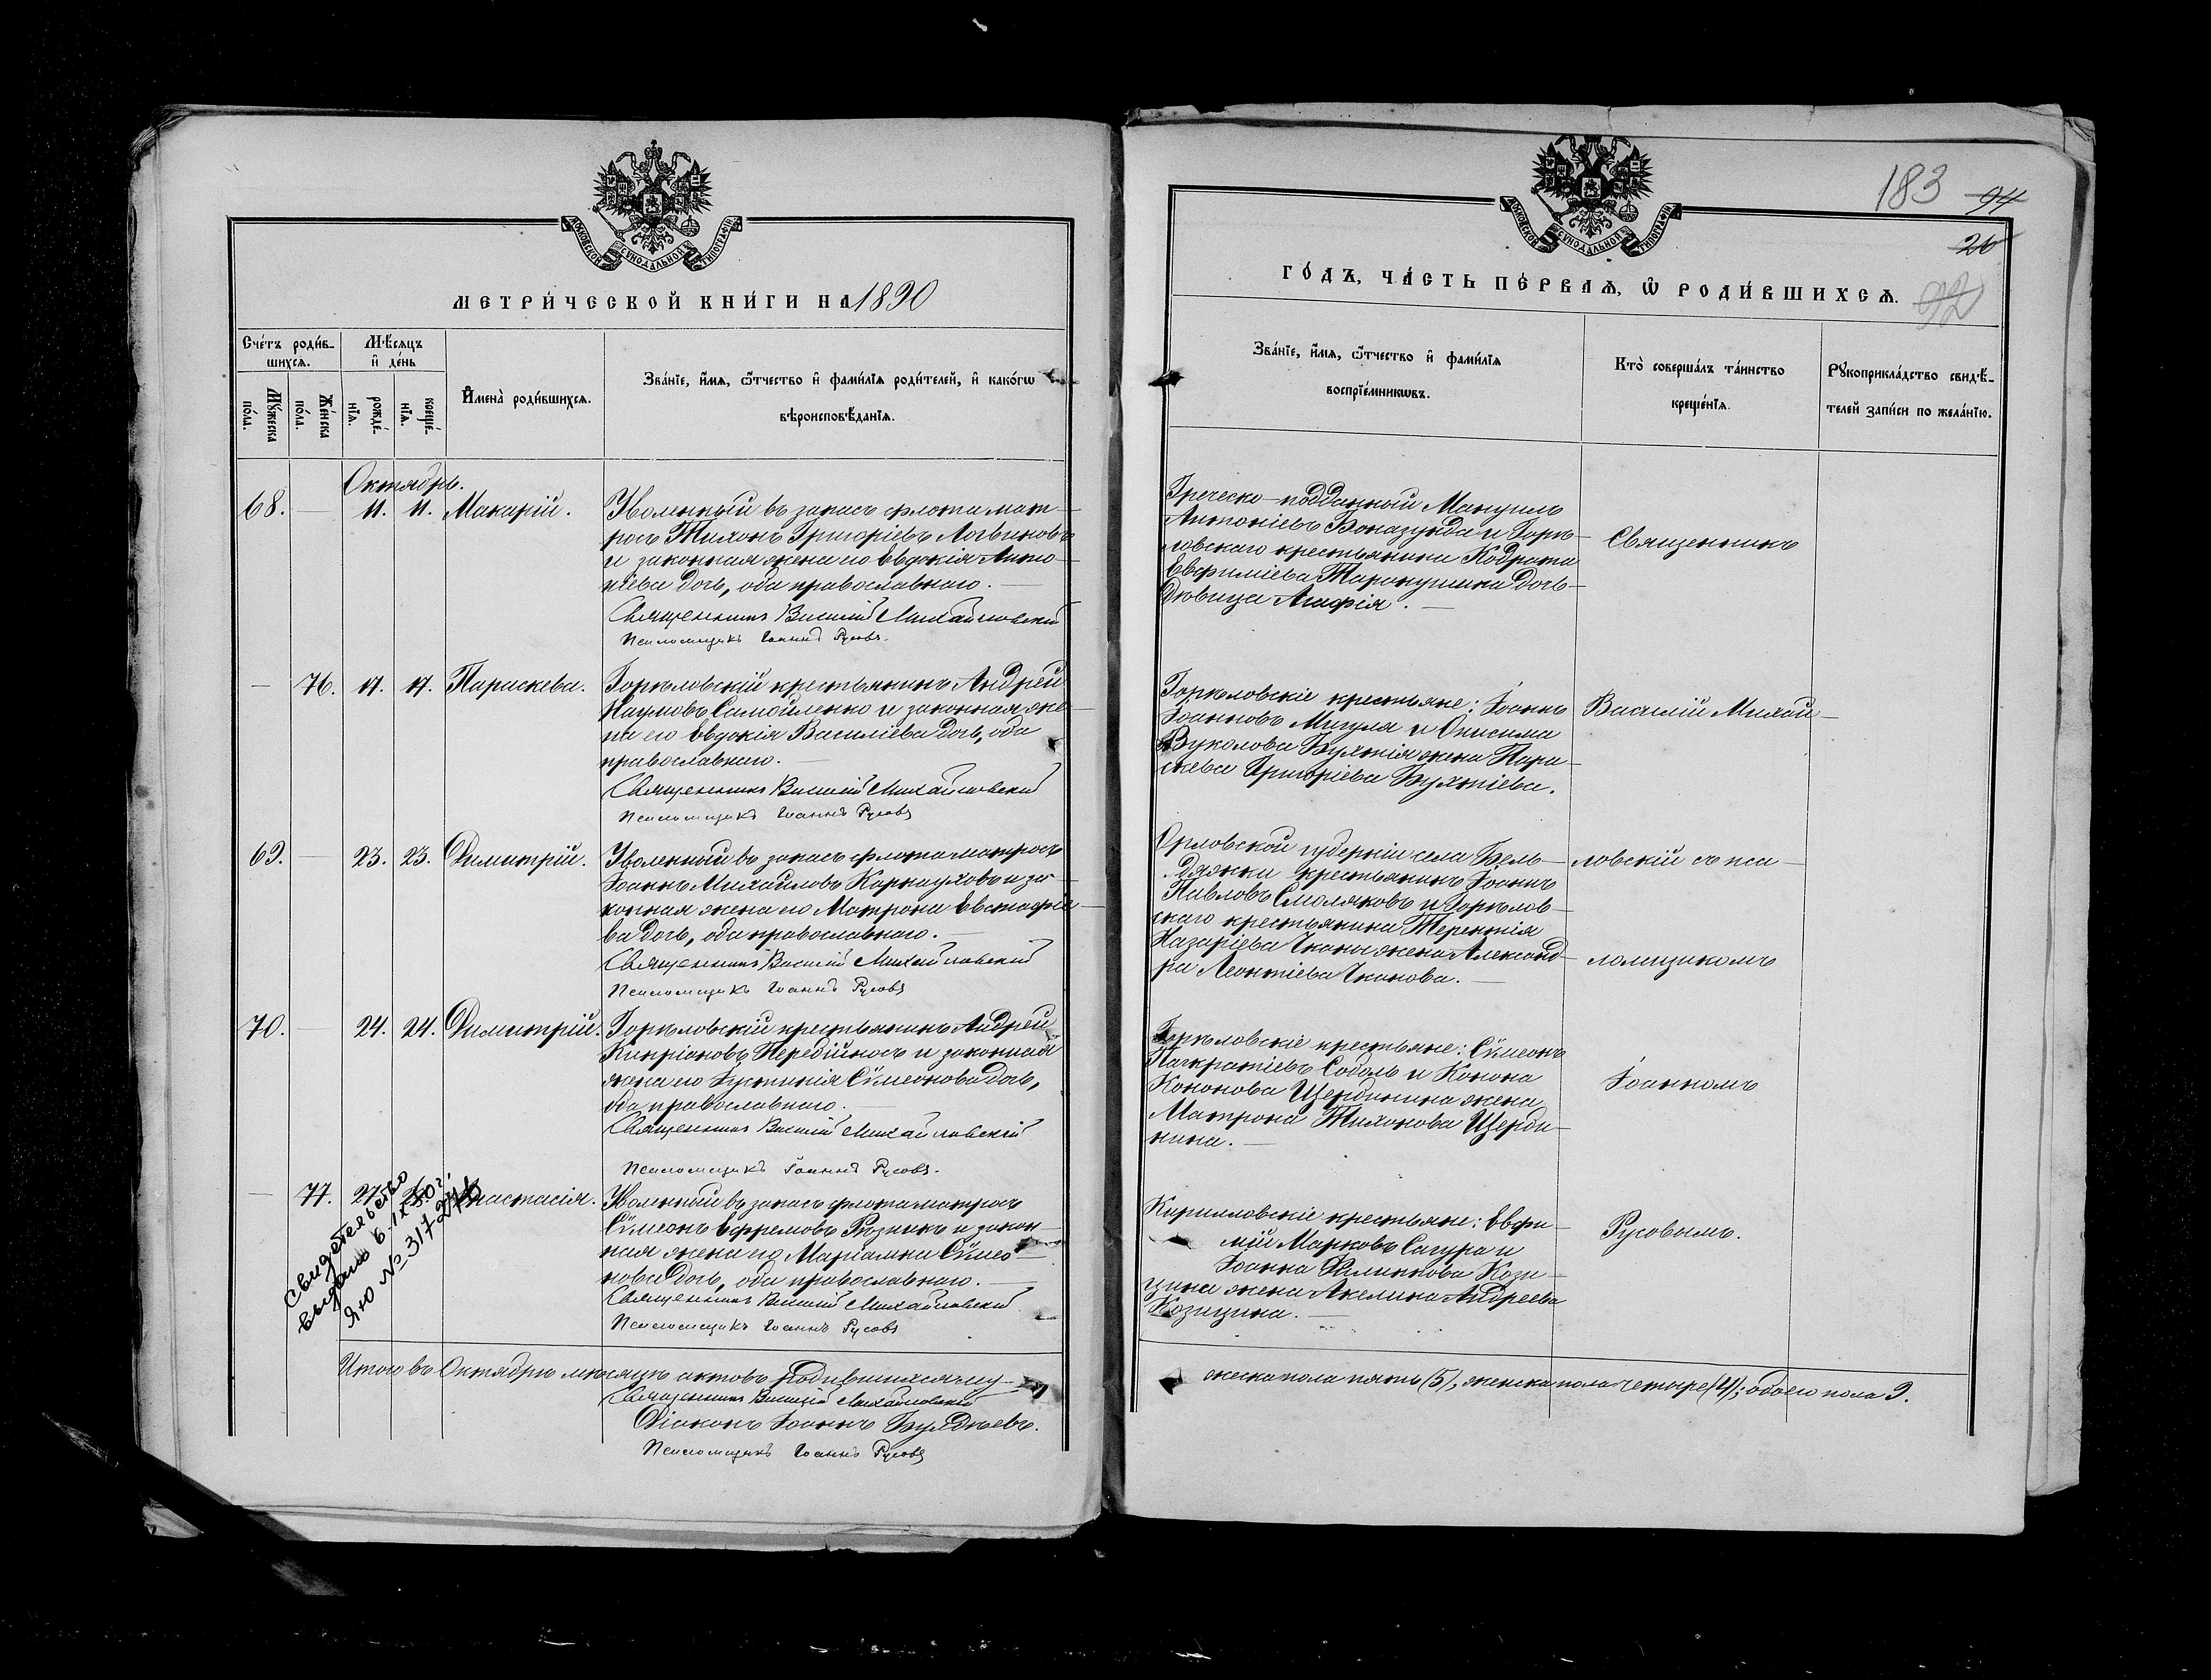 МОСКОВСКОЙ СѴНОДАЛЬНОЙ ТИПОГРАФІИ
МЕТРИ́ЧЕСКОЙ КНИ́ГИ НА 1890
Сче́тъ роди́в-
шихсѧ.
Мѣ́сѧцъ
и҆ де́нь
Мꙋ́жеска
по́ла.
Же́нска
по́ла.
рожде́-
нїѧ.
креще́-
нїѧ.
И҆мена̀ роди́вшихсѧ.
Зва́нїе, и҆́мѧ, ѻ҆́тчество и҆ фами́лїѧ роди́телей, и҆ како́гѡ
вѣроисповѣ́данїѧ.
Октябрь.
68. — 11. 11. Макарій.
Уволенный въ запасъ флота мат-
росъ Тихонъ Григоріевъ Логвиновъ
и законная жена его Евдокія Анто-
ніева дочь, оба православнаго. —
Священникъ Василій Михайловскій
Псаломщикъ Іоаннъ Русовъ.
— 76. 17. 17. Параскева.
Горѣловскій крестьянинъ Андрей
Наумовъ Самойленко и законная же-
на его Евдокія Василіева дочь, оба
православнаго. —
Священникъ Василій Михайловскій
Псаломщикъ Іоаннъ Русовъ
69. — 23. 23. Димитрій.
Уволенный въ запасъ флота матросъ
Іоаннъ Михаиловъ Карнауховъ и за-
конная жена его Матрона Евстафіе-
ва дочь, оба православнаго. —
Священникъ Василій Михайловскій
Псаломщикъ Іоаннъ Русовъ
70. — 24. 24. Димитрій.
Горѣловскій крестьянинъ Андрей
Кипріановъ Перебійносъ и законная
жена его Іустинія Сѵмеонова дочь,
оба православнаго. —
Священникъ Василій Михайловскій
Псаломщикъ Іоаннъ Русовъ.
— 77. 27. Анастасія.
Уволенный въ запасъ флота матросъ
Сѵмеонъ Ефремовъ Рѣзникъ и закон-
ная жена его Маріамна Сѵмео-
нова дочь, оба православнаго. —
Священникъ Василій Михайловскій
Псаломщикъ Іоаннъ Русовъ
Свидетельство
выдано 6.IX.50 г.
ЯЮ № 317276
Итого въ Октябрѣ мѣсяцѣ актовъ родившихся му-
Священникъ Василій Михайловскій
Діаконъ Іоаннъ Булдѣевъ.
Псаломщикъ Іоаннъ Русовъ
183 94
26
92
МОСКОВСКОЙ СѴНОДАЛЬНОЙ ТИПОГРАФІИ
ГО́ДЪ, ЧА́СТЬ ПЕ́РВАѦ, Ѡ҆ РОДИ́ВШИХСѦ.
Зва́нїе, и҆́мѧ, ѻ҆́тчество и҆ фами́лїѧ
воспрїе́мникѡвъ.
Кто̀ соверша́лъ та́инство
креще́нїѧ.
Рꙋкоприкла́дство свидѣ́-
телей за́писи по жела́нїю.
Греческо-подданный Мануилъ
Антоніевъ Боназунда и Горѣ-
ловскаго крестьянина Кодрата
Евфиміева Таранушика дочь-
дѣвица Агафія. —
Священникъ
Горѣловскіе крестьяне: Іоаннъ
Іоанновъ Мигуля и Онисима
Вуколова Бухтія жена Пара-
скева Григоріева Бухтіева.
Василій Михай-
Орловской губерніи села Бѣль-
дяжки крестьянинъ Іоаннъ
Павловъ Смоляковъ и Горѣлов-
скаго крестьянина Терентія
Назаріева Чкана жена Александ-
ра Леонтіева Чканова. —
ловскій съ пса-
ломщикомъ
Горѣловскіе крестьяне: Сѵмеонъ
Панкратіевъ Соболь и Конона
Кононова Щербинина жена
Матрона Тихонова Щерби-
нина. —
Іоанномъ
Кирилловскіе крестьяне: Евфи-
мій Марковъ Сагура и
Іоанна Филиппова Кози-
цина жена Акелина Андреева
Козицина. —
Русовымъ.
жеска пола пять (5), женска пола четыре (4); обоего пола 9.